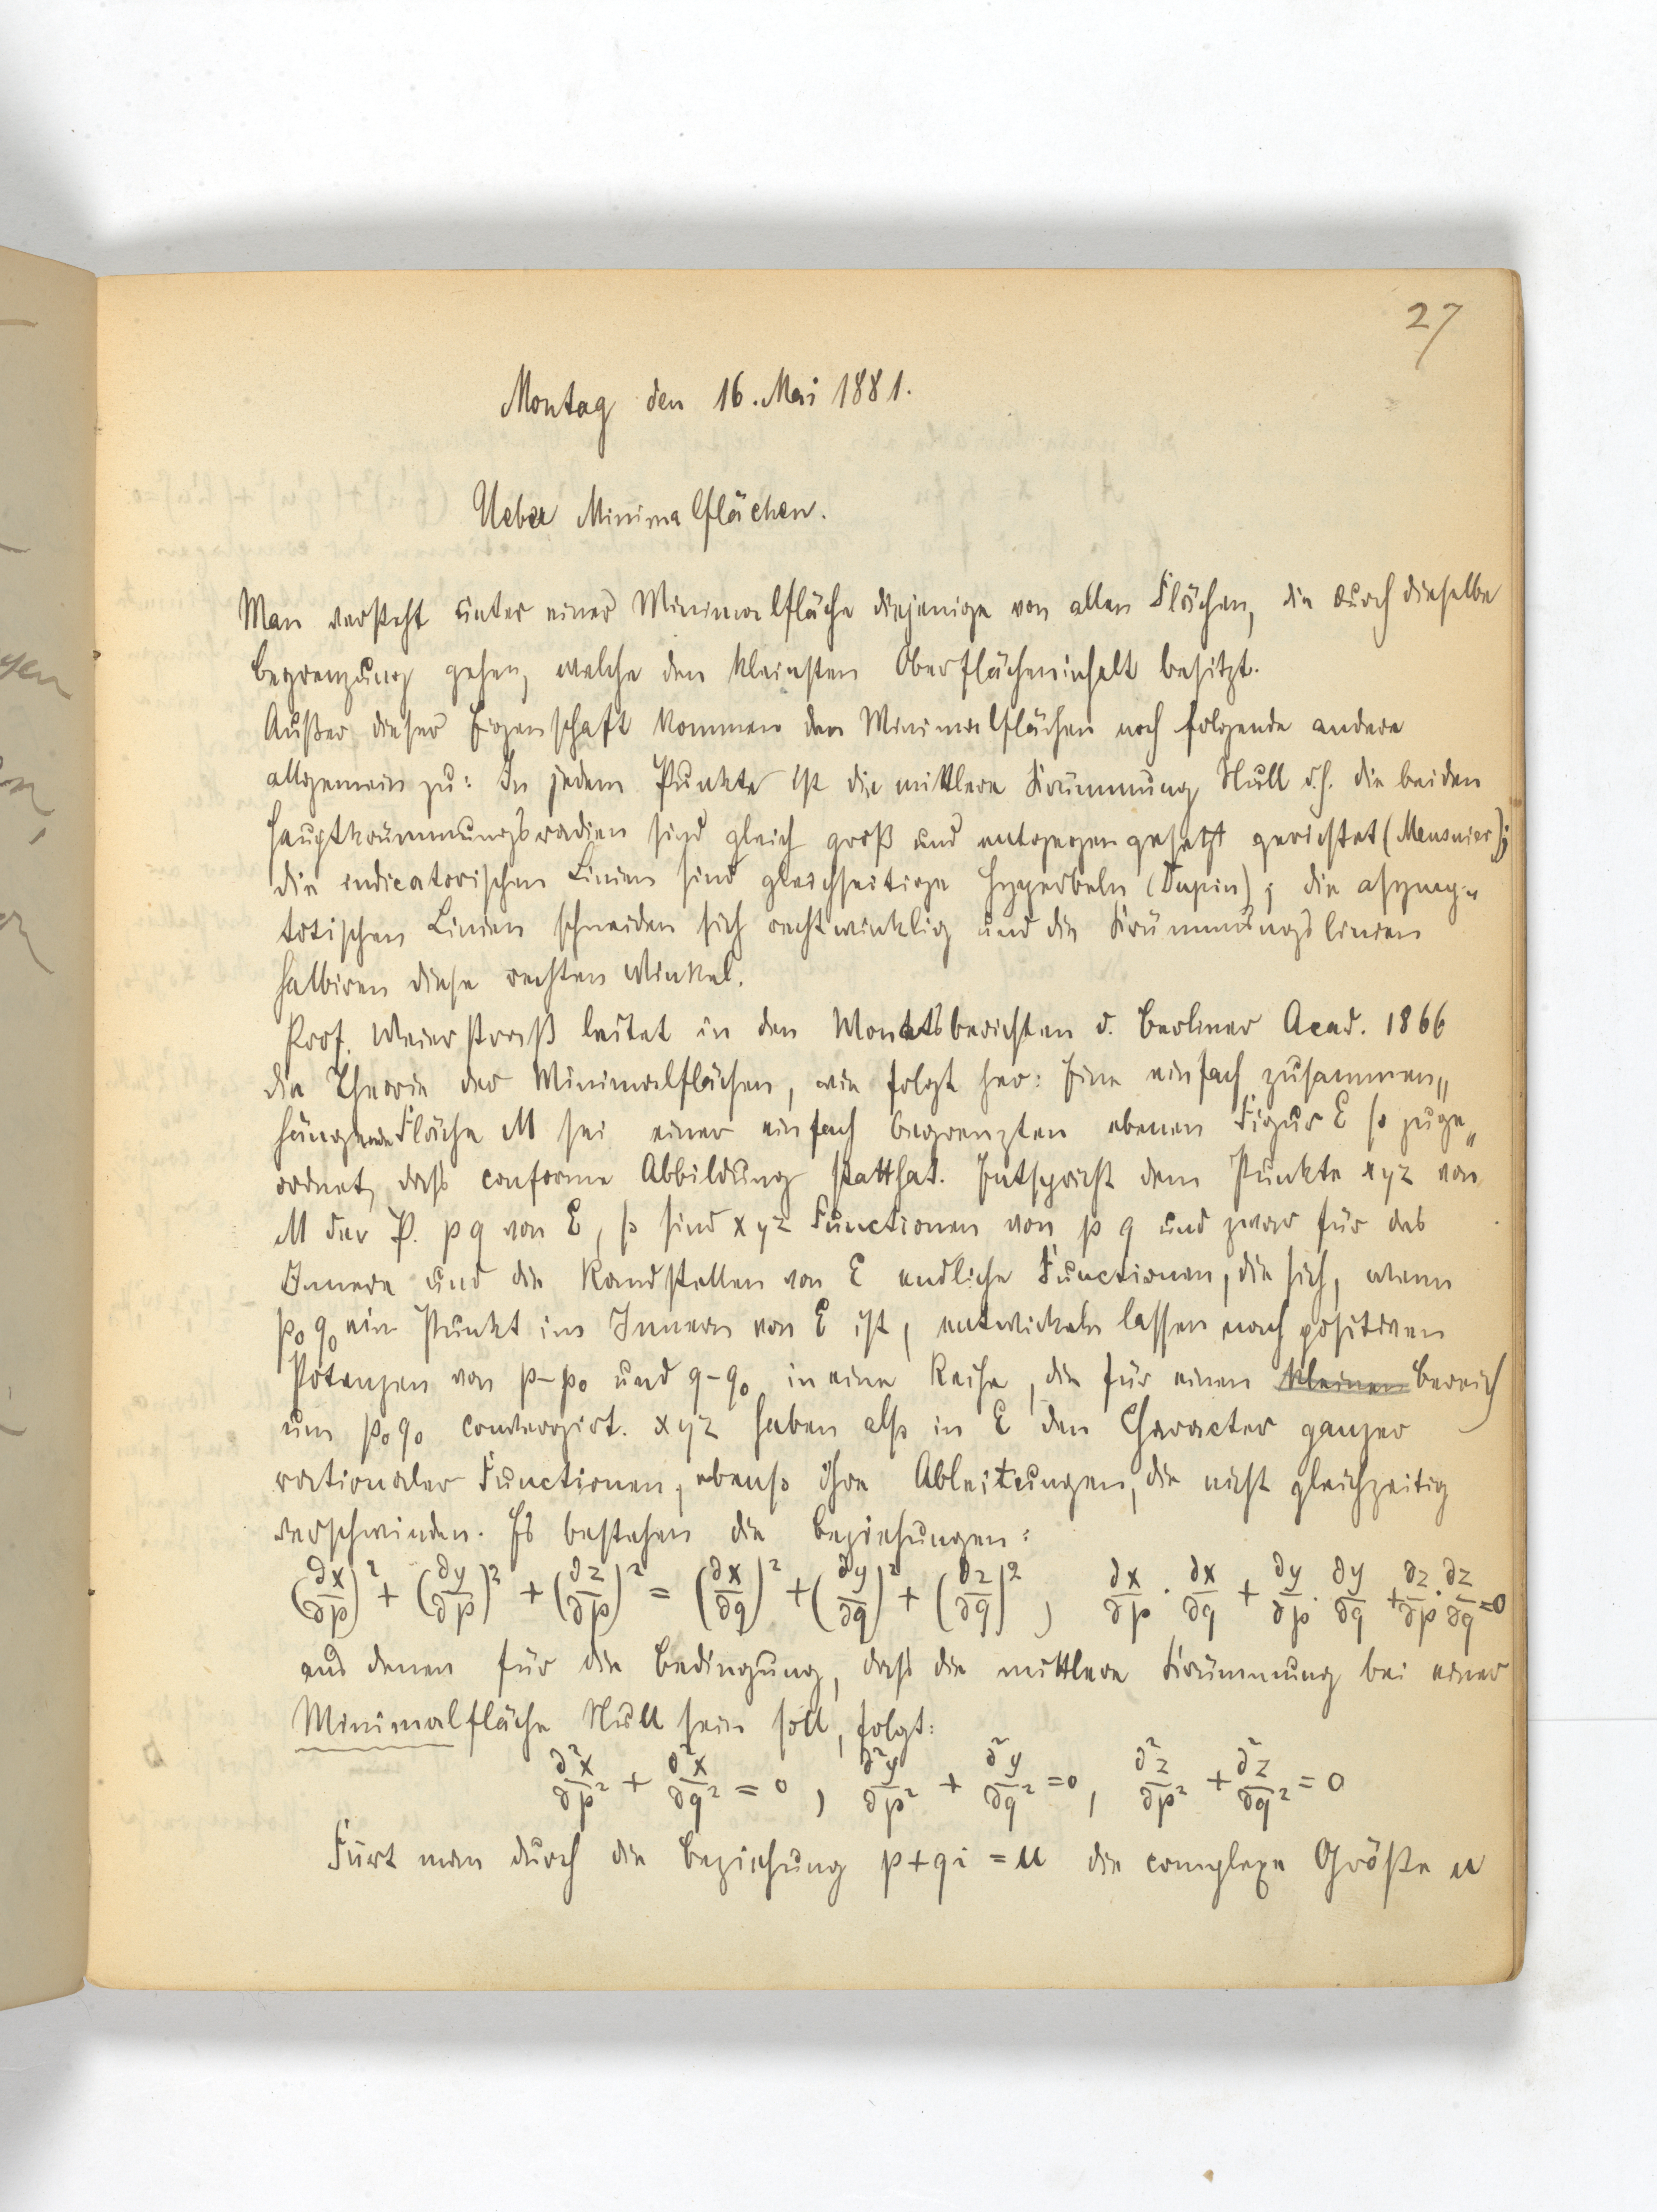 27
Montag den 16. Mai 1881.
Ueber Minimalflächen.
Man versteht unter einer Minimalfläche diejenige von allen Flächen, die durch dieselbe
Begrenzung gehen, welche den kleinsten Oberflächeninhalt besitzt.
Außer dieser Eigenschaft kommen den Minimalflächen noch folgende andere
allgemein zu: In jedem Punkte ist die mittlere Krümmung Null d.h. die beiden
Hauptkrümmungsradien sind gleich groß und entgegengesetzt gerichtet (Meusnier);
die indicatorischen Linien sind gleichseitige Hyperbeln (Dupin); die asymp-
totischen Linien schneiden sich rechtwinklig und die Krümmungslinien
halbiren diese rechten Winkel.
Prof. Weierstraß leitet in den Monatsberichten d. Berliner Acad. 1866
die Theorie der Minimalflächen, wie folgt her: Eine einfach zusammen„
hängende Fläche M sei einer einfach begrenzten ebenen Figur E so zuge„
ordnet, dass conforme Abbildung statthat. Entspricht dem Punkte xyz von
M der P. pq von E, so sind xyz Functionen von p q und zwar für das
Innere und die Randstellen von E endliche Functionen, die sich, wenn
p₀q₀ ein Punkt im Innern von E ist, entwickeln lassen nach positiven
Potenzen von p-p₀ und q-q₀ in eine Reihe, die für einen kleinen Bereich
um p₀q₀ convergirt. xyz haben also in E den Character ganzer
rationaler Functionen, ebenso ihre Ableitungen, die nicht gleichzeitig
verschwinden. Es bestehen die Beziehungen:
(∂x/∂p)² + (∂y/∂p)² + (∂z/∂p)² = (∂x/∂q)² + (∂y/∂q)² + (∂z/∂q)², ∂x/∂p · ∂x/∂q + ∂y/∂p · ∂y/∂q + ∂z/∂p · ∂z/∂q = 0
aus denen für die Bedingung, dass die mittlere Krümmung bei einer
Minimalfläche Null sein soll, folgt:
∂²x/∂p² + ∂²x/∂q² = 0, ∂²y/∂p² + ∂²y/∂q² = 0, ∂²z/∂p² + ∂²z/∂q² = 0
Fürt man durch die Beziehung p+qi = u die complexe Größe u